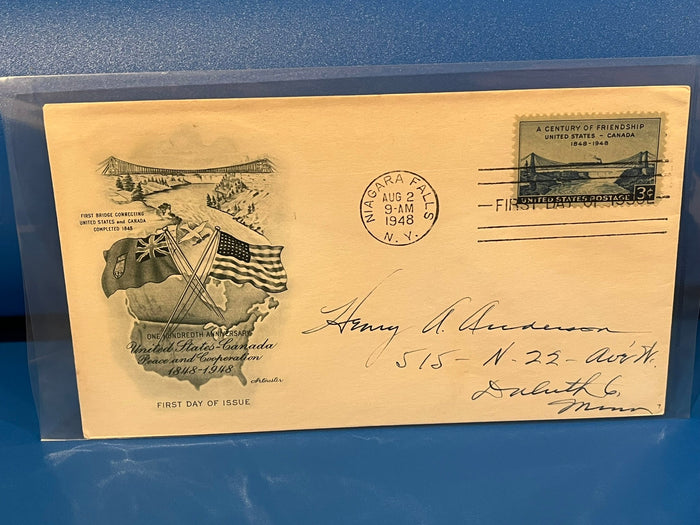 FIRST BRIDGE CONNECTING
UNITED STATES and CANADA
COMPLETED 1848
ONE HUNDREDTH ANNIVERSARY
United States-Canada
Peace and Cooperation
1848-1948
Artcraft
FIRST DAY OF ISSUE
NIAGARA FALLS
AUG 2
9-AM
1948
N. Y.
A CENTURY OF FRIENDSHIP
UNITED STATES - CANADA
1848-1948
3¢
UNITED STATES POSTAGE
FIRST DAY OF ISSUE
Henry A. Anderson
515- N-22- Ave W.
Duluth 6,
Minn